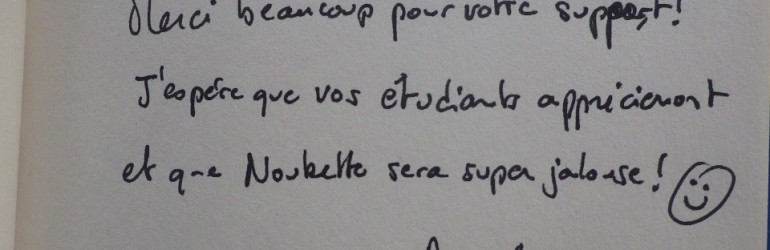 Merci beaucoup pour votre support!
J'espère que vos étudiants apprécieront
et que Noukette sera super jalouse!